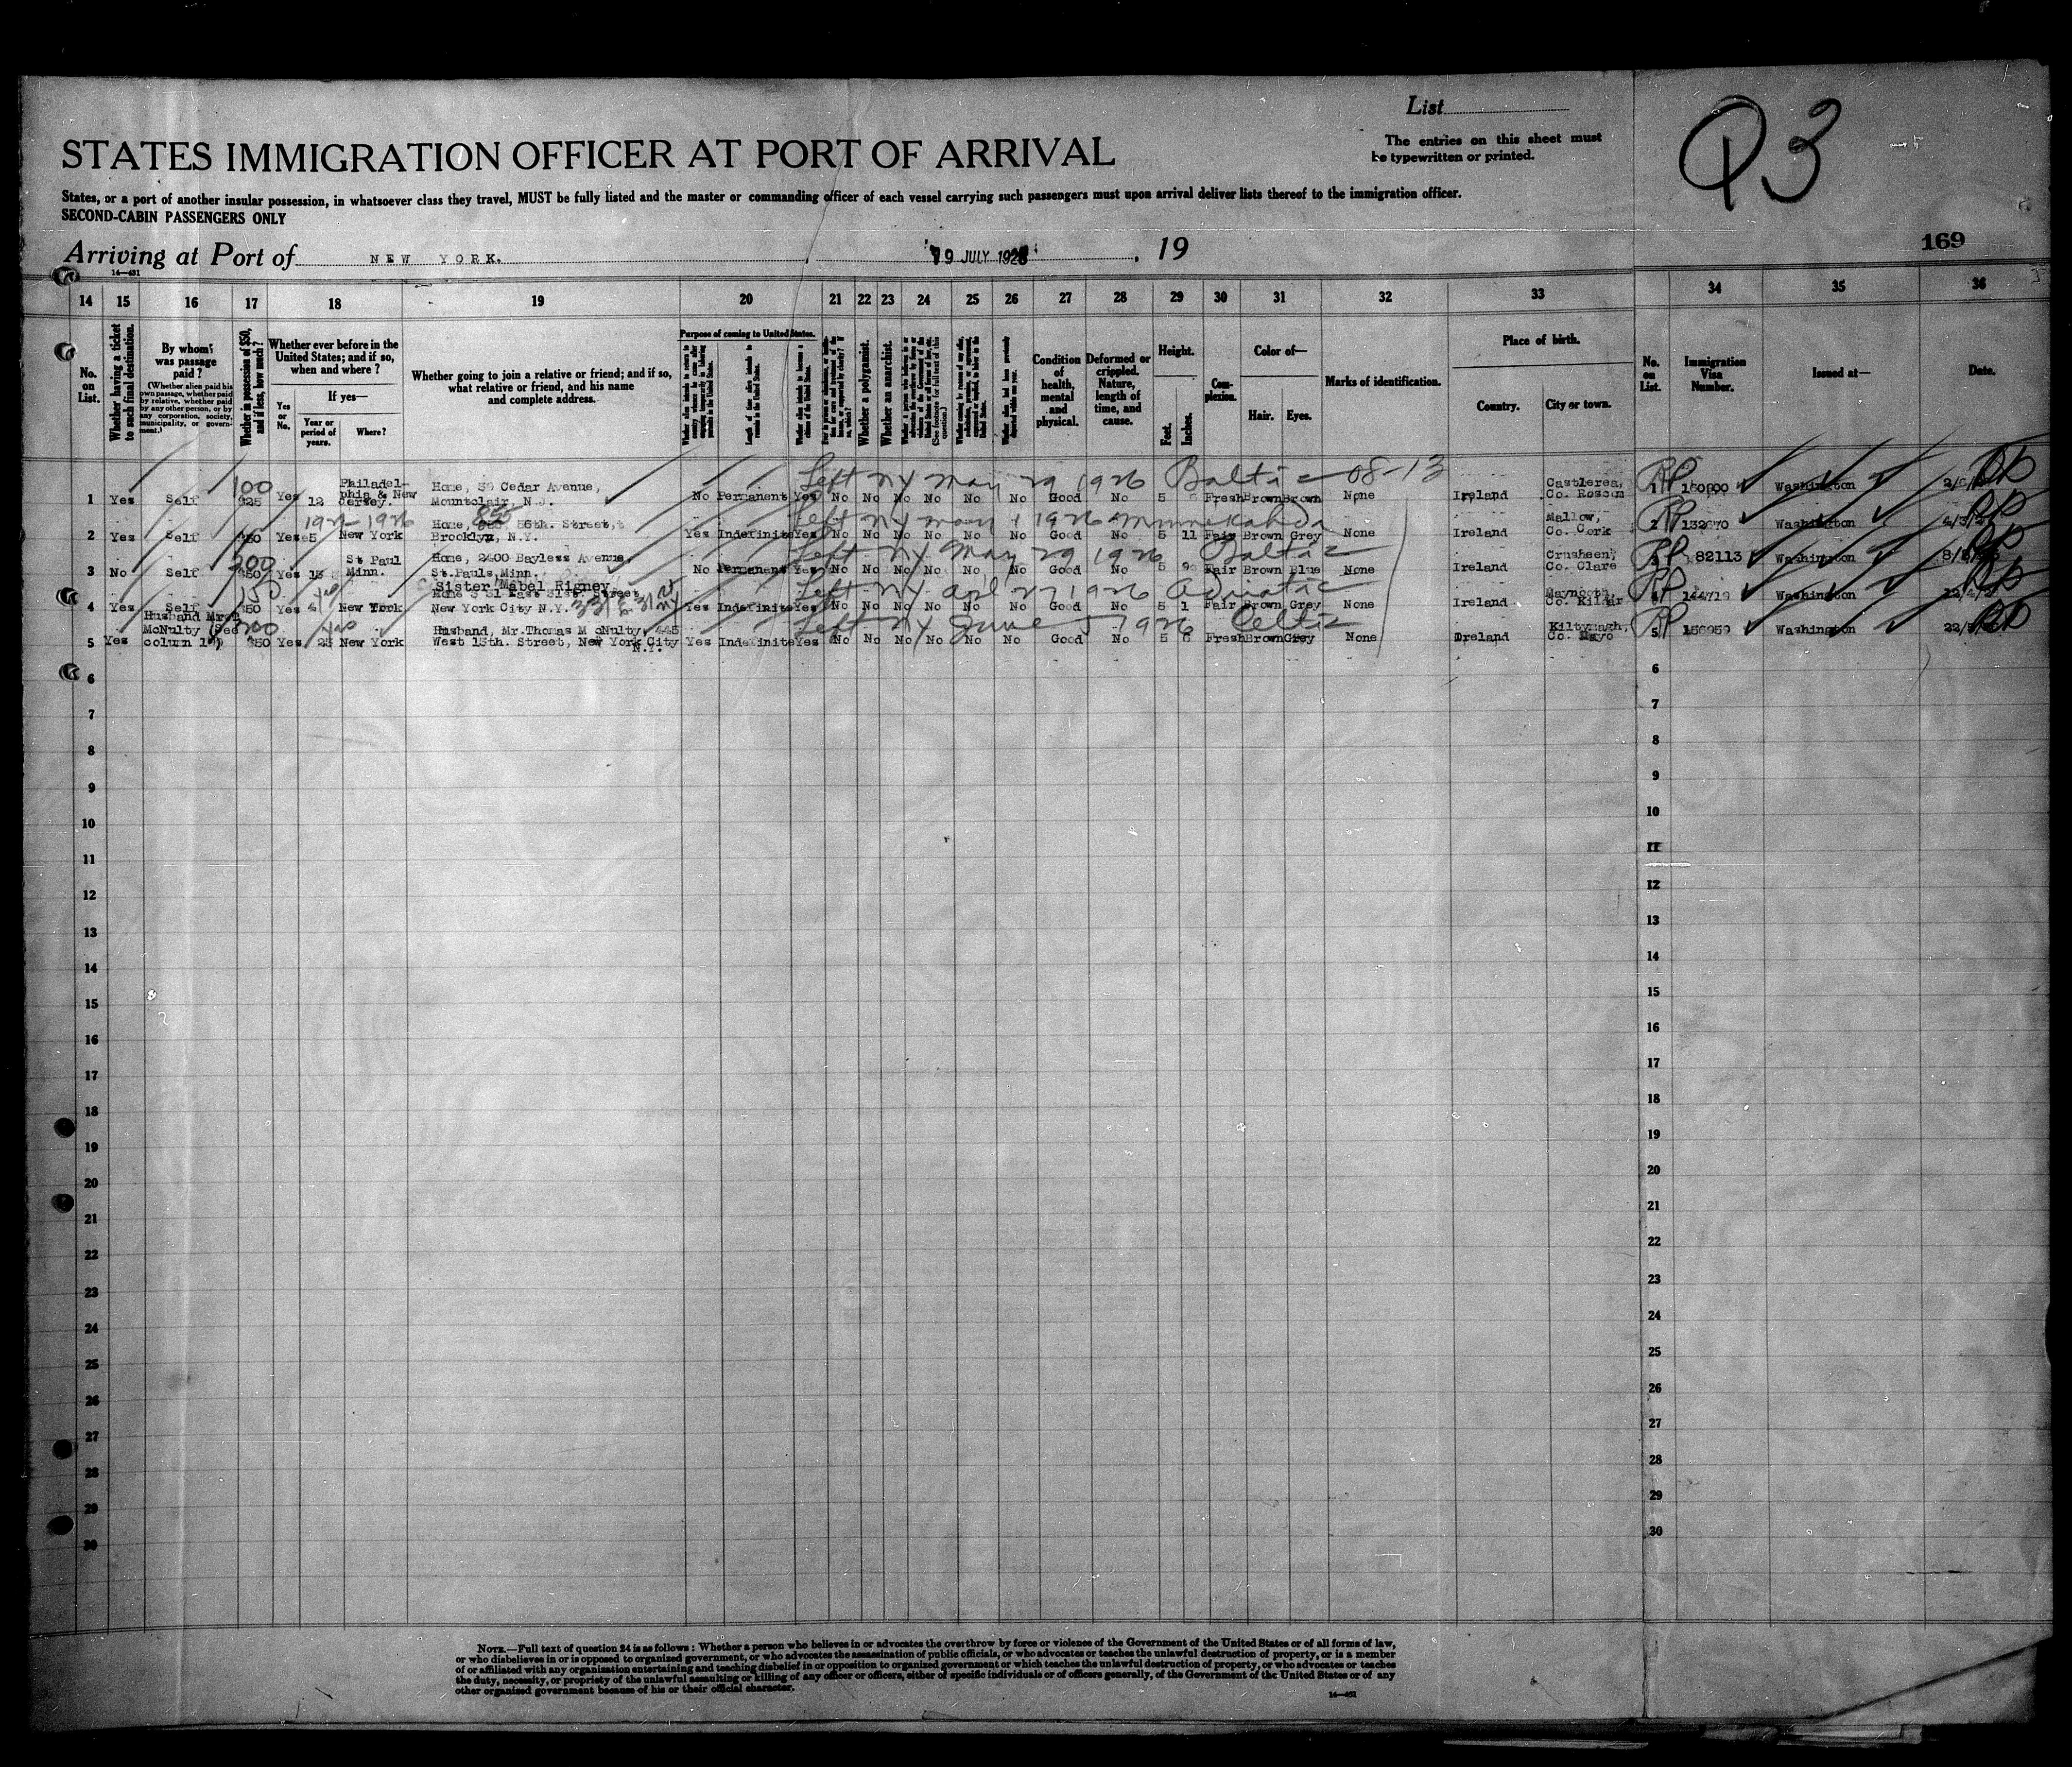 List
The entries on this sheet must
be typewritten or printed.
P3
STATES IMMIGRATION OFFICER AT PORT OF ARRIVAL
States, or a port of another insular possession, in whatsoever class they travel, MUST be fully listed and the master or commanding officer of each vessel carrying such passengers must upon arrival deliver lists thereof to the immigration officer.
SECOND-CABIN PASSENGERS ONLY
169
Arriving at Port of NEW YORK. , 19 JULY 192 , 19
14—451
14 15 16 17 18 19 20 21 22 23 24 25 26 27 28 29 30 31 32 33 34 35 36
No. on List.
Whether having a ticket to such final destination.
By whom was passage paid?
(Whether alien paid his own passage, whether paid by relative, whether paid by any other person, or by any corporation, society, municipality, or government.)
Whether in possession of $50, and if less, how much?
Whether ever before in the United States; and if so, when and where?
Yes or No.
If yes—
Year or period of years.
Where?
Whether going to join a relative or friend; and if so, what relative or friend, and his name and complete address.
Purpose of coming to United States.
Whether a polygamist.
Whether an anarchist.
(See footnote for full text of this question.)
Condition of health, mental and physical.
Deformed or crippled. Nature, length of time, and cause.
Height.
Feet. Inches.
Complexion.
Color of—
Hair. Eyes.
Marks of identification.
Place of birth.
Country. City or town.
No. on List.
Immigration Visa Number.
Issued at—
Date.
Left NY May 29 1926 Baltic 08-13
100 Philadel- Home, 39 Cedar Avenue, Castlerea,
1 Yes Self $25 Yes 12 phia & New Jersey. Mountclair, N.J. No Permanent Yes No No No No No No Good No 5 Fresh Brown Brown None Ireland Co. Roscom 1 160900 Washington
1926 855 Left NY 1 1926 Minnekahda
Home, 55th. Street, Mallow,
2 Yes Self $50 Yes 5 New York Brooklyn, N.Y. Yes Indefinite Yes No No No No No No Good No 5 11 Fair Brown Grey None Ireland Co. Cork 2 Washington
Left NY May 29 1926 Baltic
200 St Paul Home, 2400 Bayless Avenue, Crusheen,
3 No Self $50 Yes 13 Minn. St.Pauls, Minn. No Permanent Yes No No No No No No Good No 5 9 Fair Brown Blue None Ireland Co. Clare 3 82113 Washington
150 Sister Mabel Rigney Left NY 27 1926 Adriatic
Home 331 East 31st. Street, 331 E 31 St NY Maynooth,
4 Yes Self $50 Yes 4 New York New York City N.Y. Yes Indefinite Yes No No No No No No Good No 5 1 Fair Brown Grey None Ireland Co. Kildar 4 144719 Washington
Left NY June 5 1926 Celtic
Husband Mr.T McNulty (See 200 Husband, Mr.Thomas McNulty 445 Kiltymagh,
5 Yes column 19) $50 Yes 23 New York West 13th. Street, New York City N.Y. Yes Indefinite Yes No No No No No No Good No 5 Fresh Brown Grey None Ireland Co. Mayo 5 156959 Washington
6 6
7 7
8 8
9 9
10 10
11 11
12 12
13 13
14 14
15 15
16 16
17 17
18 18
19 19
20 20
21 21
22 22
23 23
24 24
25 25
26 26
27 27
28 28
29 29
30 30
NOTE.—Full text of question 24 is as follows: Whether a person who believes in or advocates the overthrow by force or violence of the Government of the United States or of all forms of law,
or who disbelieves in or is opposed to organized government, or who advocates the assassination of public officials, or who advocates or teaches the unlawful destruction of property, or is a member
of or affiliated with any organization entertaining and teaching disbelief in or opposition to organized government or which teaches the unlawful destruction of property, or who advocates or teaches
the duty, necessity, or propriety of the unlawful assaulting or killing of any officer or officers, either of specific individuals or of officers generally, of the Government of the United States or of any
other organized government because of his or their official character.
14—451